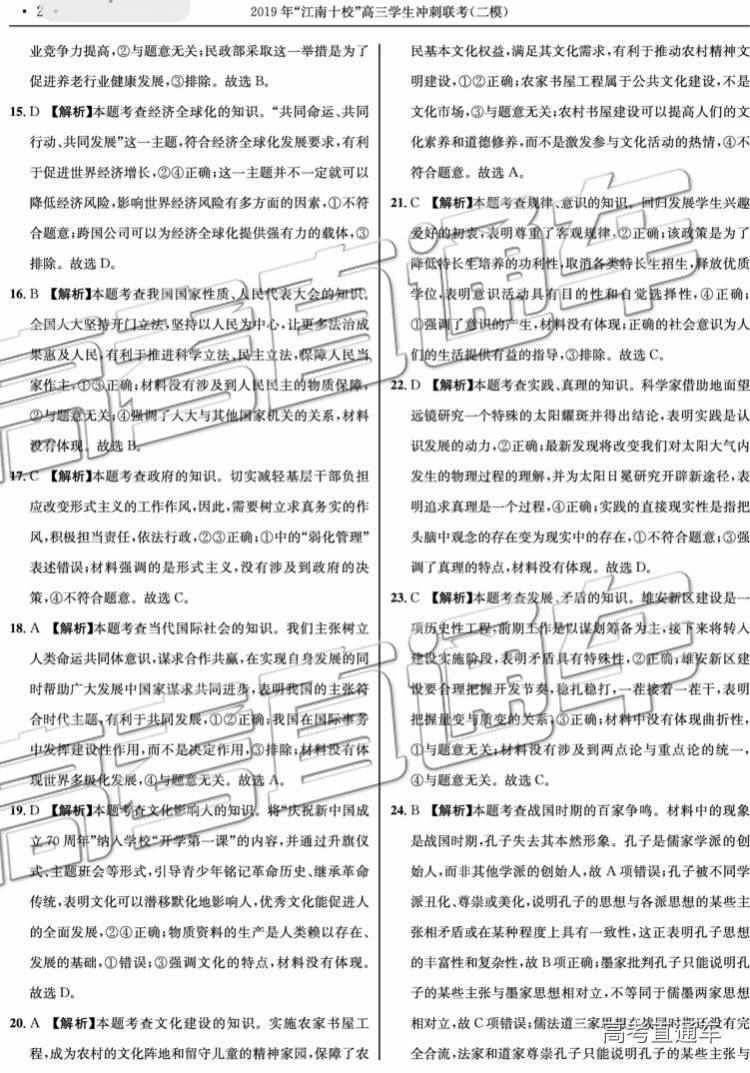 2019年“江南十校”高三学生冲刺联考(二模)
业竞争力提高,②与题意无关;民政部采取这一举措是为了
促进养老行业健康发展,③排除。故选B。
15. D 【解析】本题考查经济全球化的知识。“共同命运、共同
行动、共同发展”这一主题,符合经济全球化发展要求,有利
于促进世界经济增长,②④正确;这一主题并不一定就可以
降低经济风险,影响世界经济风险有多方面的因素,①不符
合题意;跨国公司可以为经济全球化提供强有力的载体,③
排除。故选D。
16. B 【解析】本题考查我国国家性质、人民代表大会的知识。
全国人大坚持开门立法,坚持以人民为中心,让更多法治成
果惠及人民,有利于推进科学立法、民主立法,保障人民当
家作主,①③正确;材料没有涉及到人民民主的物质保障,
②与题意无关;④强调了人大与其他国家机关的关系,材料
没有体现。故选B。
17. C 【解析】本题考查政府的知识。切实减轻基层干部负担
应改变形式主义的工作作风,因此,需要树立求真务实的作
风,积极担当责任,依法行政,②③正确;①中的“弱化管理”
表述错误;材料强调的是形式主义,没有涉及到政府的决
策,④不符合题意。故选C。
18. A 【解析】本题考查当代国际社会的知识。我们主张树立
人类命运共同体意识,谋求合作共赢,在实现自身发展的同
时帮助广大发展中国家谋求共同进步,表明我国的主张符
合时代主题,有利于共同发展,①②正确;我国在国际事务
中发挥建设性作用,而不是决定作用,③排除;材料没有体
现世界多极化发展,④与题意无关。故选A。
19. D 【解析】本题考查文化影响人的知识。将“庆祝新中国成
立70周年”纳入学校“开学第一课”的内容,并通过升旗仪
式、主题班会等形式,引导青少年铭记革命历史、继承革命
传统,表明文化可以潜移默化地影响人,优秀文化能促进人
的全面发展,②④正确;物质资料的生产是人类赖以存在、
发展的基础,①错误;③强调文化的特点,材料没有体现。
故选D。
20. A 【解析】本题考查文化建设的知识。实施农家书屋工
程,成为农村的文化阵地和留守儿童的精神家园,保障了农
民基本文化权益,满足其文化需求,有利于推动农村精神文
明建设,①②正确;农家书屋工程属于公共文化建设,不是
文化市场,③与题意无关;农村书屋建设可以提高人们的文
化素养和道德修养,而不是激发参与文化活动的热情,④不
符合题意。故选A。
21. C 【解析】本题考查规律、意识的知识。回归发展学生兴趣
爱好的初衷,表明尊重了客观规律,②正确;该政策是为了
降低特长生培养的功利性,取消各类特长生招生,释放优质
学位,表明意识活动具有目的性和自觉选择性,④正确;
①强调了意识的产生,材料没有体现;正确的社会意识为人
们的生活提供有益的指导,③排除。故选C。
22. D 【解析】本题考查实践、真理的知识。科学家借助地面望
远镜研究一个特殊的太阳耀斑并得出结论,表明实践是认
识发展的动力,②正确;最新发现将改变我们对太阳大气内
发生的物理过程的理解,并为太阳日冕研究开辟新途径,表
明追求真理是一个过程,④正确;实践的直接现实性是指把
头脑中观念的存在变为现实中的存在,①不符合题意;③强
调了真理的特点,材料没有体现。故选D。
23. C 【解析】本题考查发展、矛盾的知识。雄安新区建设是一
项历史性工程,前期工作是以谋划筹备为主,接下来将转入
建设实施阶段,表明矛盾具有特殊性,②正确;雄安新区建
设要合理把握开发节奏,稳扎稳打,一茬接着一茬干,表明
把握量变与质变的关系,③正确;材料中没有体现曲折性,
①与题意无关;材料没有涉及到两点论与重点论的统一,
④与题意无关。故选C。
24. B 【解析】本题考查战国时期的百家争鸣。材料中的现象
是战国时期,孔子失去其本然形象。孔子是儒家学派的创
始人,而非其他学派的创始人,故A项错误;孔子被不同学
派丑化、尊崇或美化,说明孔子的思想与各派思想的某些主
张相矛盾或在某种程度上具有一致性,这正表明孔子思想
的丰富性和复杂性,故B项正确;墨家批判孔子只能说明孔
子的某些主张与墨家思想相对立,不等同于儒墨两家思想
相对立,故C项错误;儒法道三家思想在战国时期还没有完
全合流,法家和道家尊崇孔子只能说明孔子的某些主张与
高考直通车
高考直通车
高考直通车